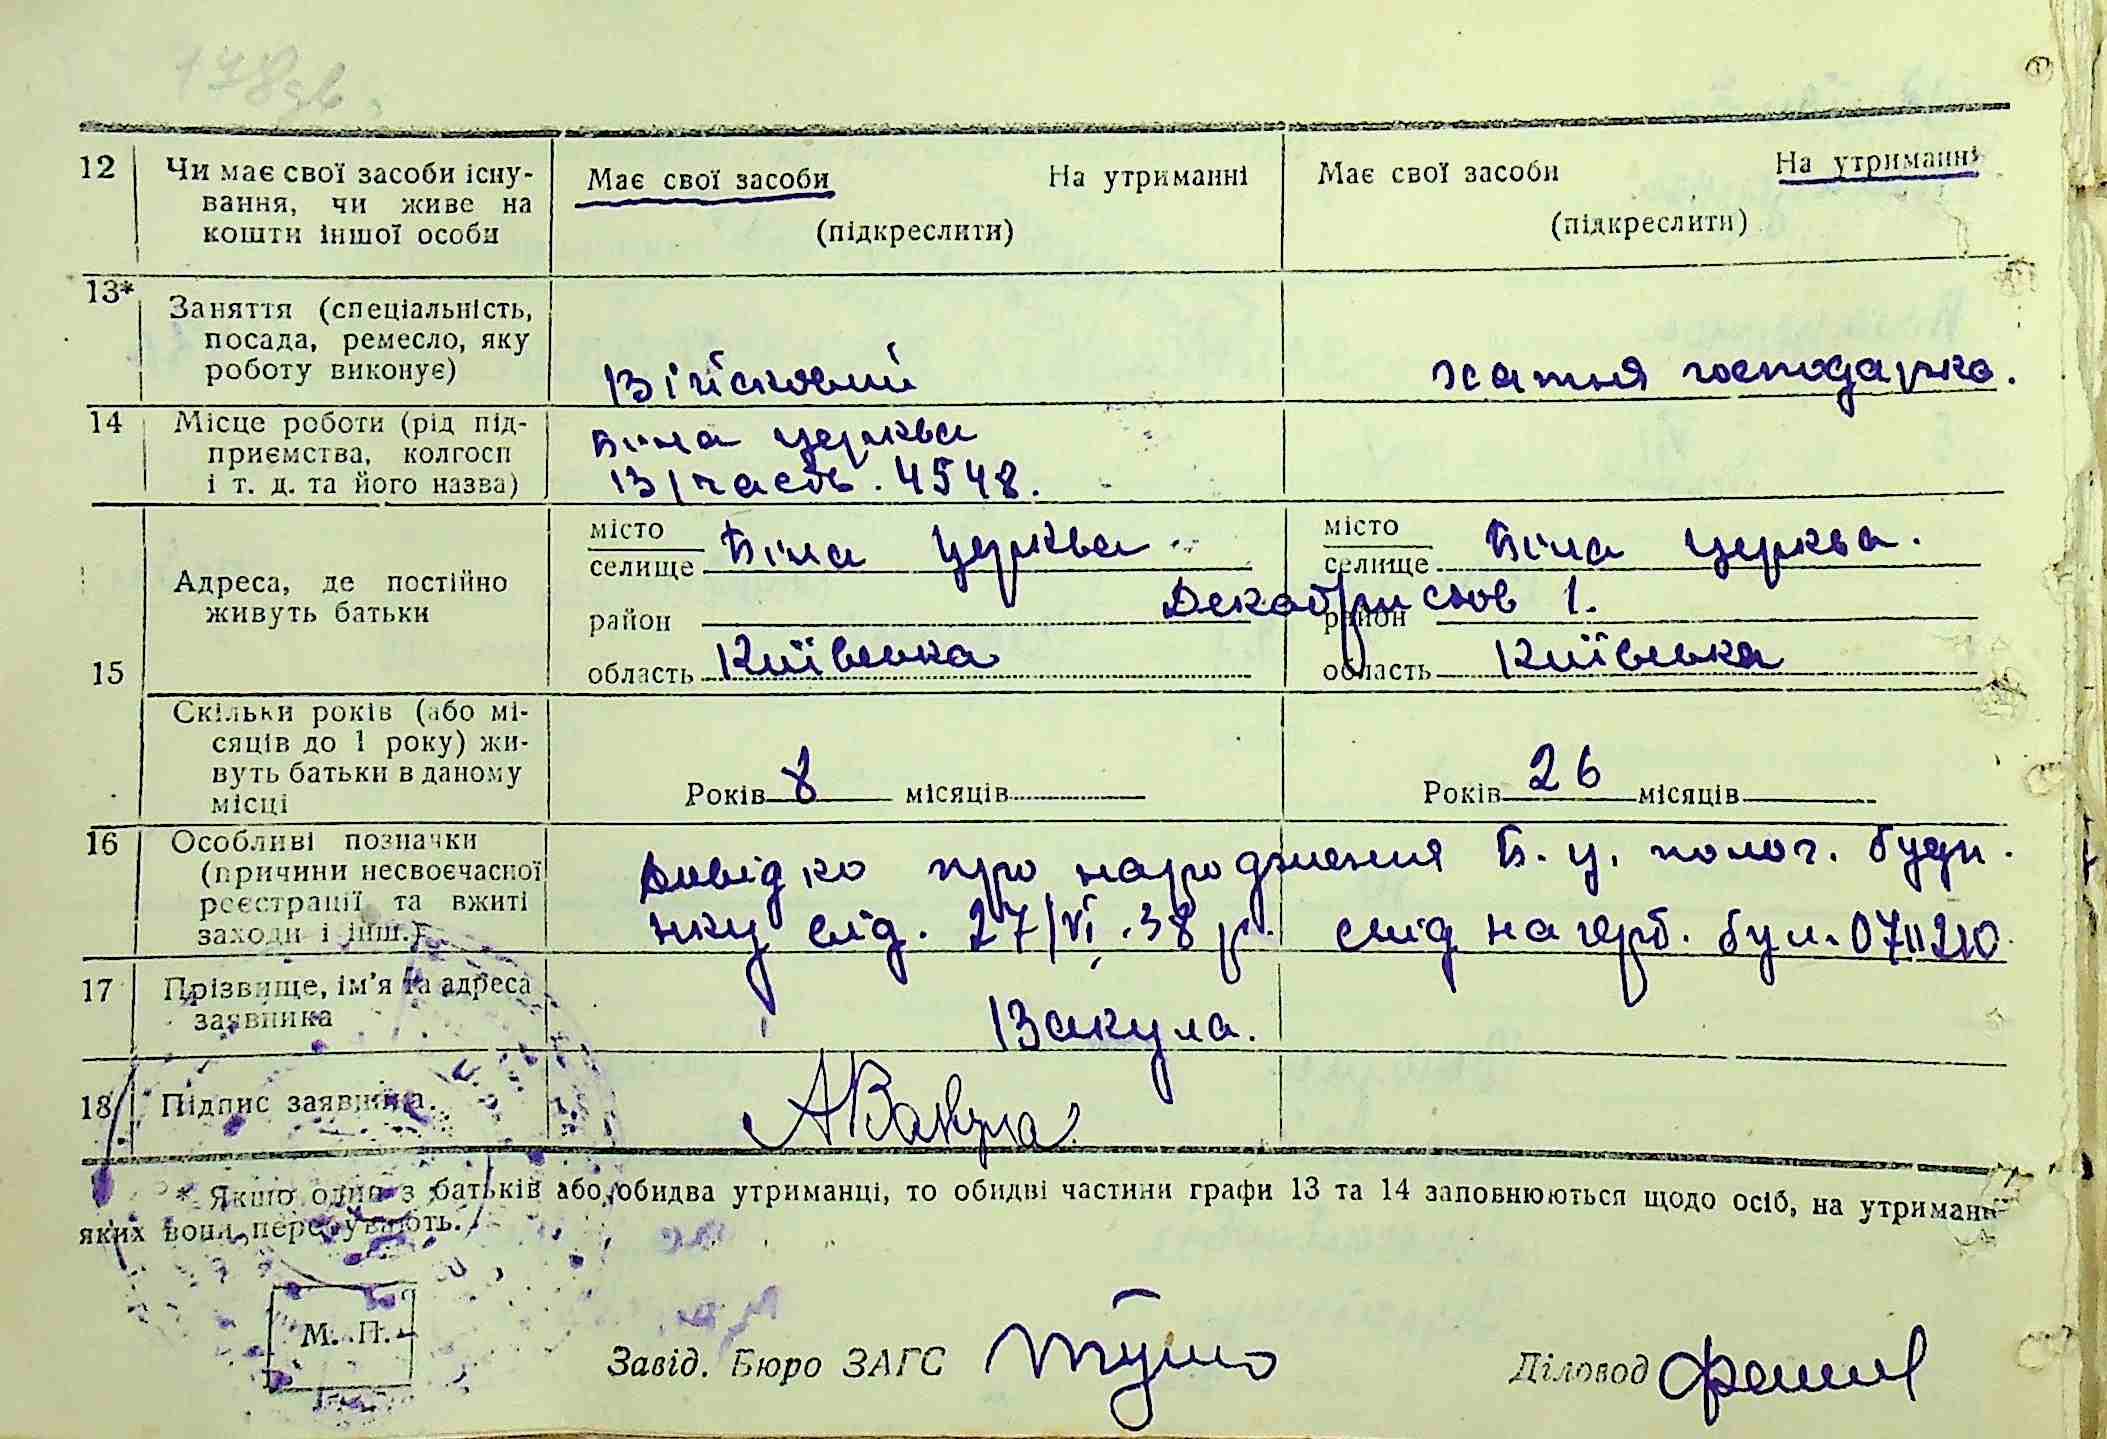 178зв.
12 Чи має свої засоби існу- Має свої засоби На утриманні Має свої засоби На утриманні
вання, чи живе на
кошти іншої особи (підкреслити) (підкреслити)
13* Заняття (спеціальність,
посада, ремесло, яку
роботу виконує) Військовий хатня господарка.
14 Місце роботи (рід під- Біла церква
приємства, колгосп
і т. д. та його назва) В/часть. 4548.
місто Біла Церква місто Біла Церква.
селище селище
Адреса, де постійно
живуть батьки район Декабристов 1. район
15 область Київська область Київська
Скільки років (або мі-
сяців до 1 року) жи-
вуть батьки в даному Років 8 місяців Років 26 місяців
місці
16 Особливі позначки
(причини несвоєчасної Довідка про народження Б. Ц. полог. буди.
реєстрації та вжиті
заходи і інш.) нку від. 27/VI.38 р. на герб. бум.
17 Прізвище, ім'я та адреса
заявника Вакула.
18 Підпис заявника. АВакула
* Якщо один з батьків або обидва утриманці, то обидві частини графи 13 та 14 заповнюються щодо осіб, на утриманні
яких вони перебувають.
М. П.
Завід. Бюро ЗАГС Діловод